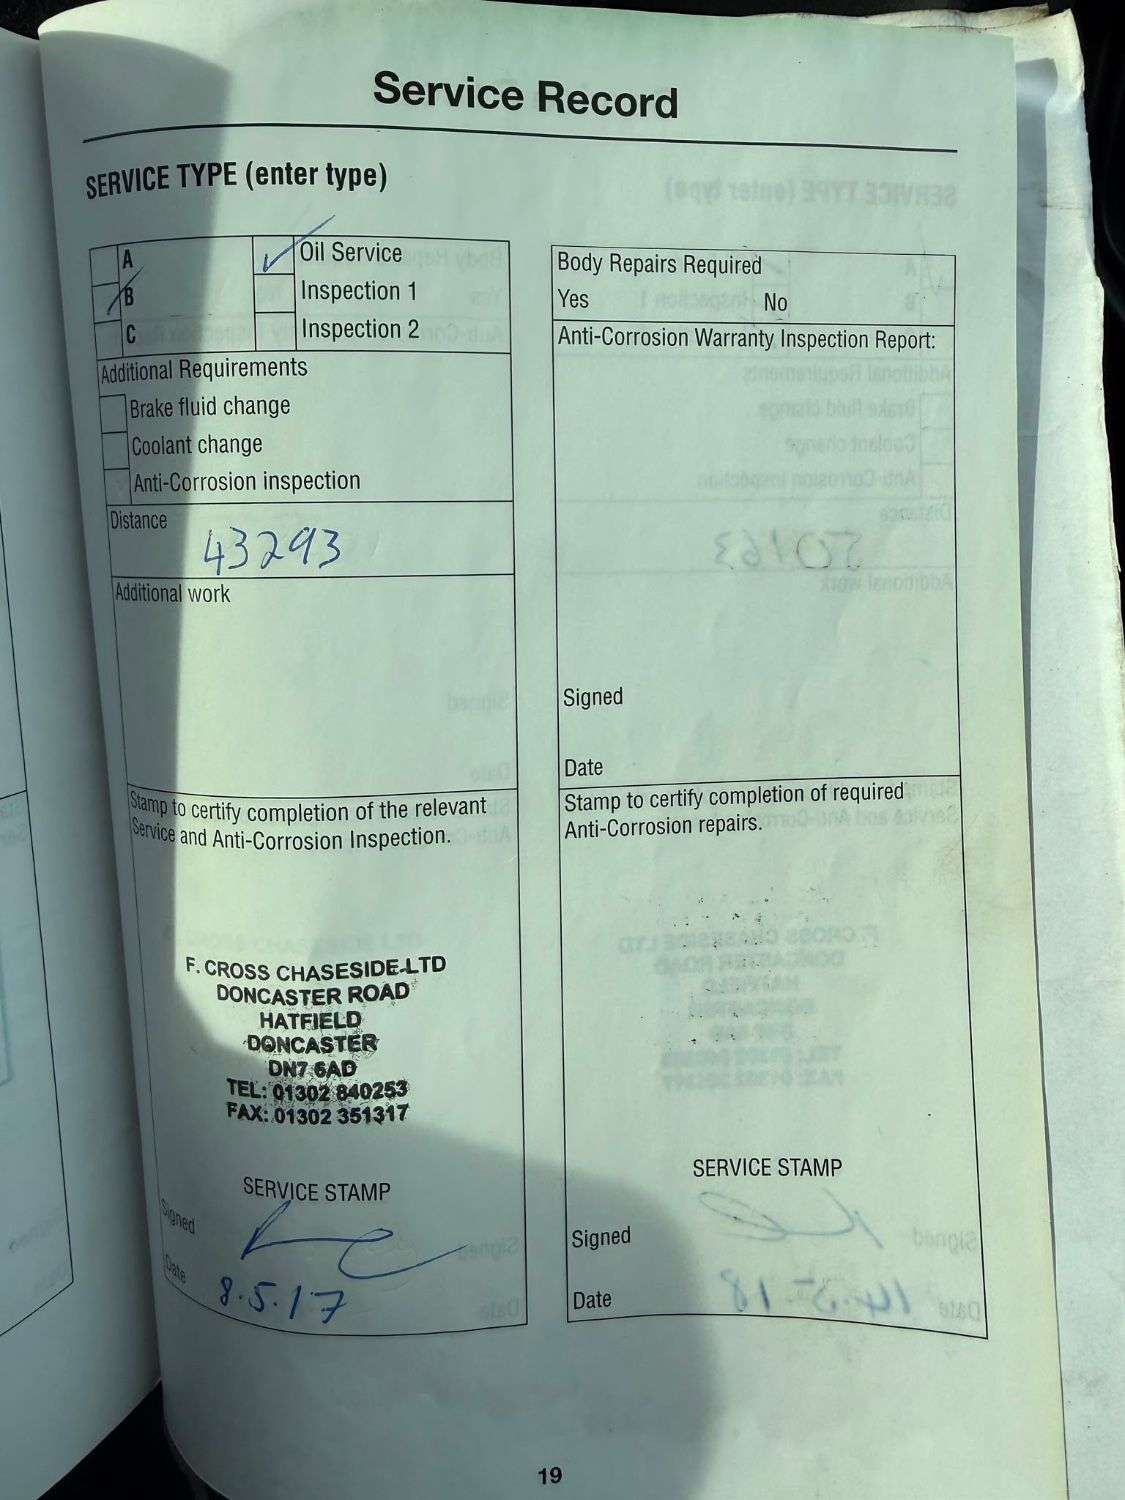 Service Record
SERVICE TYPE (enter type)
A
B
C
Oil Service
Inspection 1
Inspection 2
Additional Requirements
Brake fluid change
Coolant change
Anti-Corrosion inspection
Distance
43293
Additional work
Stamp to certify completion of the relevant
Service and Anti-Corrosion Inspection.
F. CROSS CHASESIDE LTD
DONCASTER ROAD
HATFIELD
DONCASTER
DN7 6AD
TEL: 01302 840253
FAX: 01302 351317
SERVICE STAMP
Signed
Date
8.5.17
Body Repairs Required
Yes No
Anti-Corrosion Warranty Inspection Report:
Signed
Date
Stamp to certify completion of required
Anti-Corrosion repairs.
SERVICE STAMP
Signed
Date
19